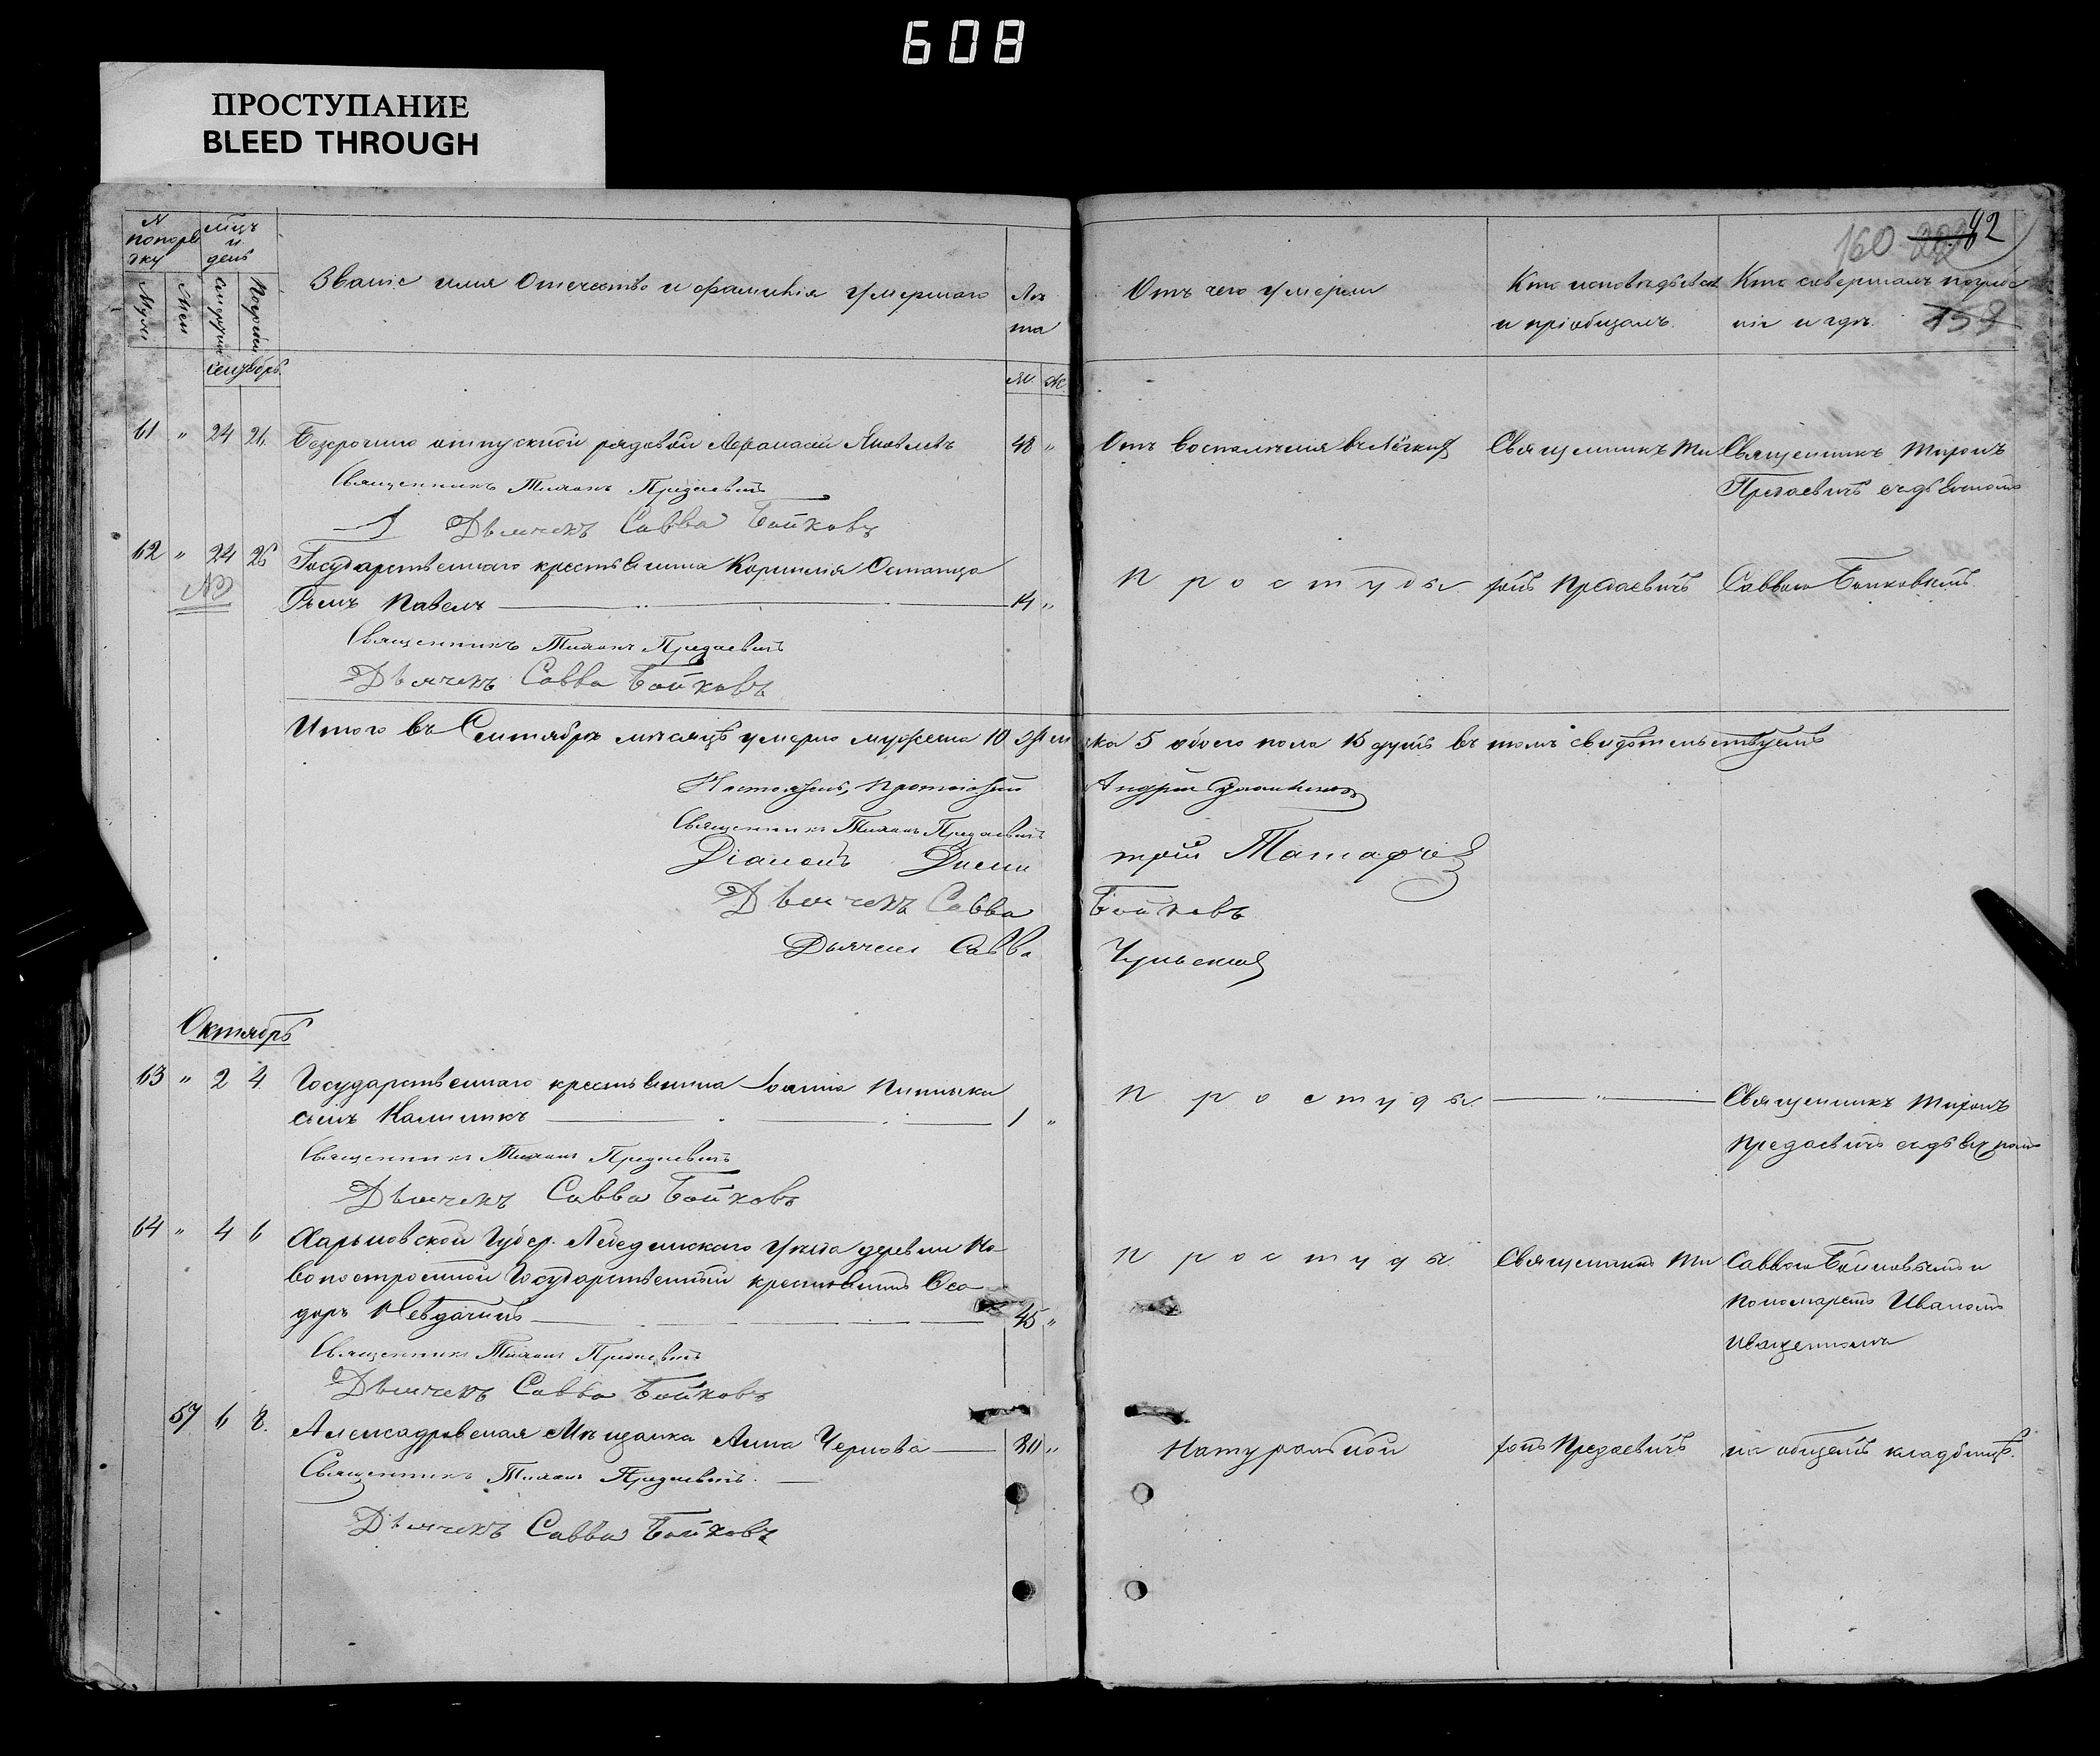 608
ПРОСТУПАНИЕ
BLEED THROUGH
N попорядку
мѣц и день
Званіе имя Отчество и фамилія умершаго
Лѣта
Муж
Жен
Смерти
сентябрь
М. Ж.
61 " 24 26. Безсрочно отпускной рядовой Афанасій Яковлевъ 48 "
Священникъ Тихонъ Предаевичъ
Дьячекъ Савва Бойковъ
62 " 24 26 Государственнаго крестьянина Корнилія Остапца
NB
Сынъ Павелъ 14 "
Священникъ Тихонъ Предаевичъ
Дьячекъ Савва Бойковъ
Итого въ Сентябрѣ мѣсяцѣ умерло мужеска 10 женска 5 обоего пола 15 душъ въ томъ свидѣтельствуемъ
Настоятель, Протоіерей Андрей
Священникъ Тихонъ Предаевичъ
Діаконъ Димитрій
Дьячекъ Савва Бойковъ
Дьячекъ Савва
Октябрь
63 " 2 4. Государственнаго крестьянина Іоанна
сынъ Калинникъ 1 "
Священникъ Тихонъ Предаевичъ
Дьячекъ Савва Бойковъ
64 " 4 6 Харьковской Губер. Лебединскаго Уѣзда деревни Но
вопостроенной Государственный крестьянинъ Ѳео
доръ 45 "
Священникъ Тихонъ Предаевичъ
Дьячекъ Савва Бойковъ
57 6 8. Александровская Мѣщанка Анна Чернова 80 "
Священникъ Тихонъ Предаевичъ.
Дьячекъ Савва Бойковъ
160 82
159
Отъ чего умерли
Кто исповѣдывалъ
и пріобщалъ.
Кто совершалъ погребе
ніе и гдѣ.
Отъ воспаленія въ лёгкихъ
Священникъ Ти
Священникъ Тихонъ
Предаевичъ съ дьячкомъ
Простуды.
хонъ Предаевичъ
Саввою Бойковымъ.
Простуды.
Священникъ Тихонъ
Предаевичъ съ дьячкомъ
Простуды.
Священникъ Ти
Саввою Бойковымъ и
пономаремъ Иваномъ
Иващенкомъ
Натуральной
хонъ Предаевичъ
на общемъ кладбищѣ.